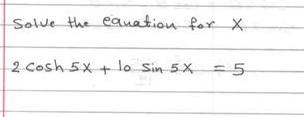 Solve the equation for X
2 Cosh 5X + 10 Sin 5X = 5